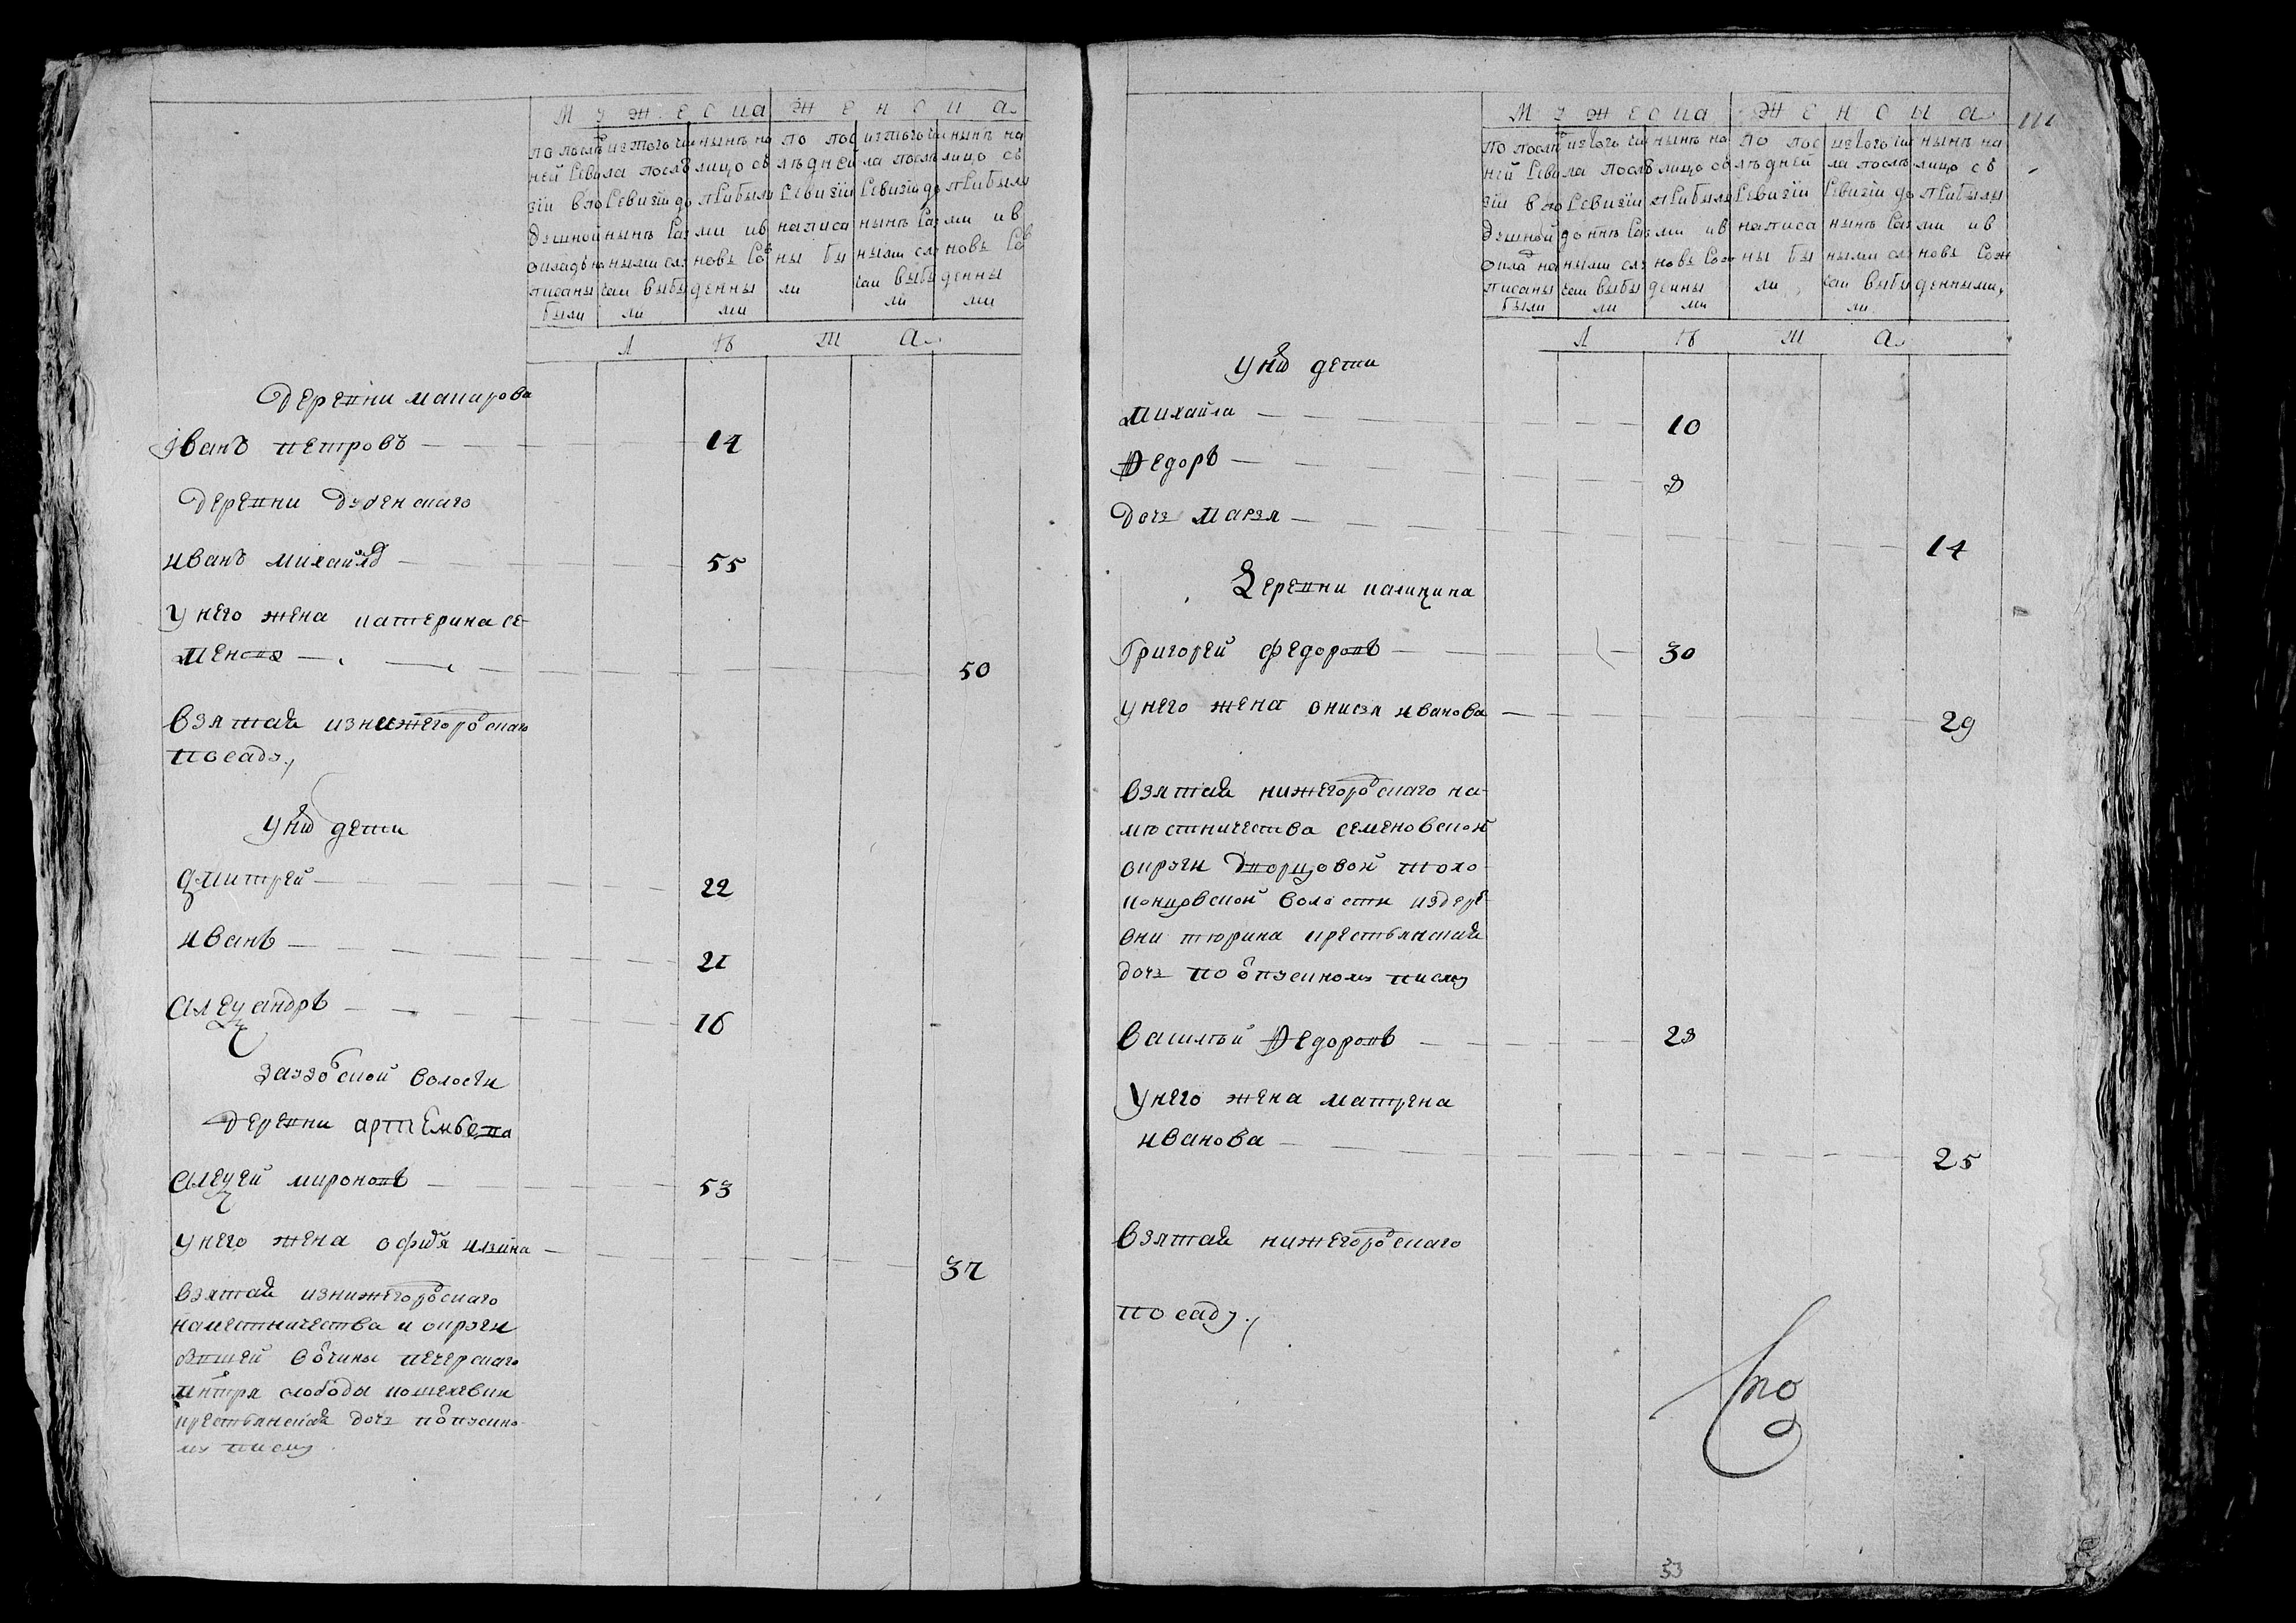 Мужеска Женска
по послѣдней ревизіи в подушной окладъ написаны были
изъ того числа послѣ ревизіи до нынѣ разными случаи выбыли
нынѣ на лицо съ прибылыми и в новь рожденными
по последней ревизіи написаны были
изъ того числа послѣ ревизіи до нынѣ разными случаи выбыли
нынѣ на лицо съ прибылыми и в новь рожденными
Лѣта
деревни макарова
Іванъ петровъ 14
деревни дубенскаго
иванъ михайлов 55
у него жена катерина се-
менова 50
взятая из нижегородскаго
посаду,
у них дети
дмитрей 22
иванъ 21
Алеѯандръ 16
заузолской волости
деревни артемьева
Алеѯей мироновъ 53
у него жена офимья 37
взятая из нижегородскаго
наместничества и округи
бывшей вотчины печерскаго
мнтря слободы кошелевки
крестьянская дочь по отпускно-
му писму
Мужеска Женска 111
по послѣдней ревизіи в подушной оклад написаны были
изъ того числа послѣ ревизіи до ннѣ разными случаи выбыли
нынѣ на лицо съ прибылыми и в новь рожденными
по последней ревизіи написаны были
изъ того числа послѣ ревизіи до нынѣ разными случаи выбыли
нынѣ на лицо съ прибылыми и в новь рожденными
Лѣта
у них дети
Михайла 10
Федоръ 8
дочь Марья 14
Деревни калинина
Григорей федоровъ 30
у него жена онисья иванова 29
взятая нижегородскаго на-
мѣстничества семеновской
округи дворцовой толо-
концовской волости из дере-
вни тюрина крестьянская
дочь по отпускному писму
Василѣй Федоровъ 28
У него жена матрена
иванова 25
взятая нижегородскаго
посаду,
53